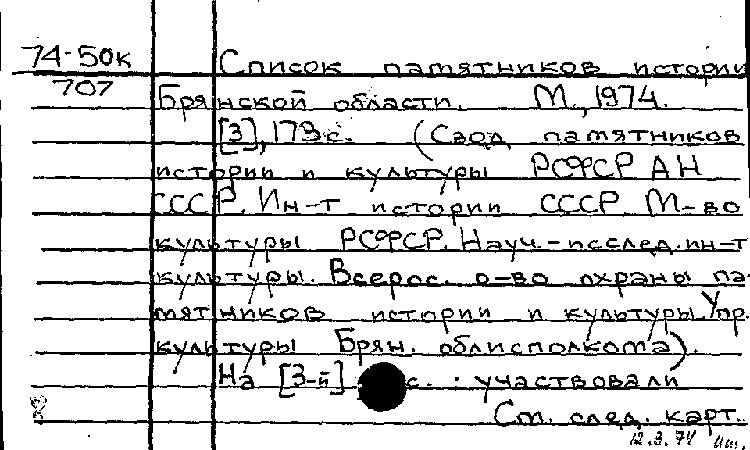 74-50к Список памятников истории
707 Брянской области. М., 1974.
[3], 173с. (Свод памятников
истории и культуры РСФСР АН
СССР. Ин-т истории СССР. М-во
культуры РСФСР. Науч.-исслед. ин-т
культуры. Всерос. о-во охраны па-
мятников истории и культуры. Упр.
культуры Брян. облисполкома).
На [3-й] с.: участвовали
См. след. карт.
12.3.74